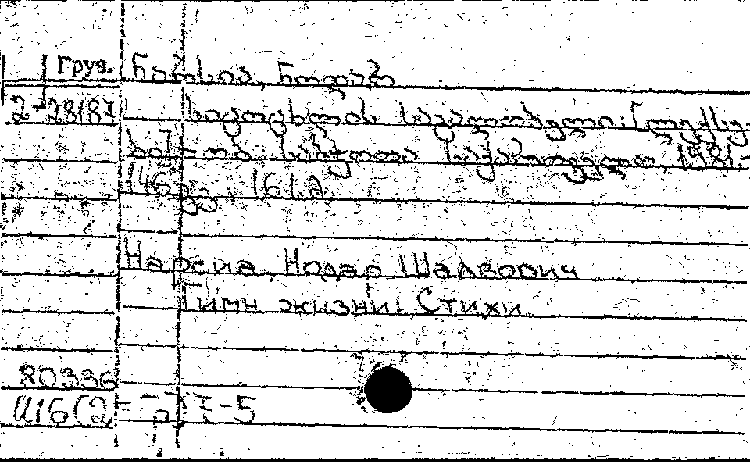 Груз. ნარსია, ნოდარ
2-28187 სიცოცხლის საგალობელი: [ლექსე-
ბი]. - თბ.: საბჭოთა საქართველო, 1981.-
146გვ., 16სმ.
Нарсиа, Нодар Шалвович
Гимн жизни: Стихи
80336